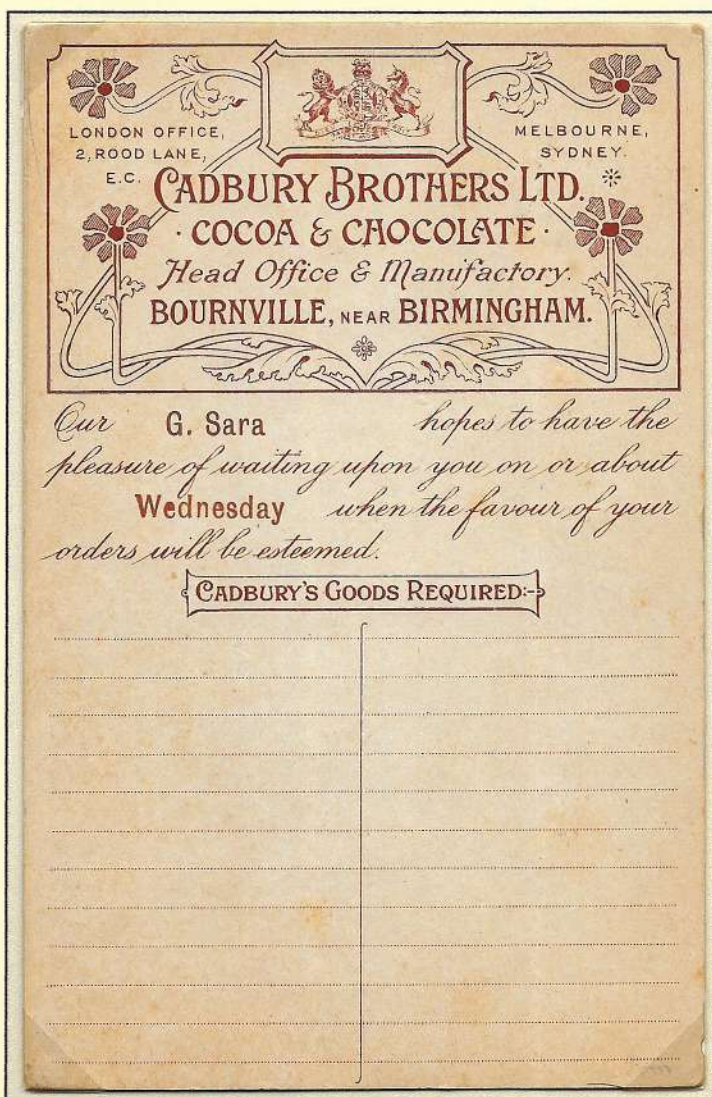 LONDON OFFICE,
2, ROOD LANE,
E.C.
MELBOURNE,
SYDNEY.
CADBURY BROTHERS LTD.
· COCOA & CHOCOLATE ·
Head Office & Manufactory.
BOURNVILLE, NEAR BIRMINGHAM.
Our G. Sara hopes to have the
pleasure of waiting upon you on or about
Wednesday when the favour of your
orders will be esteemed.
CADBURY'S GOODS REQUIRED:-